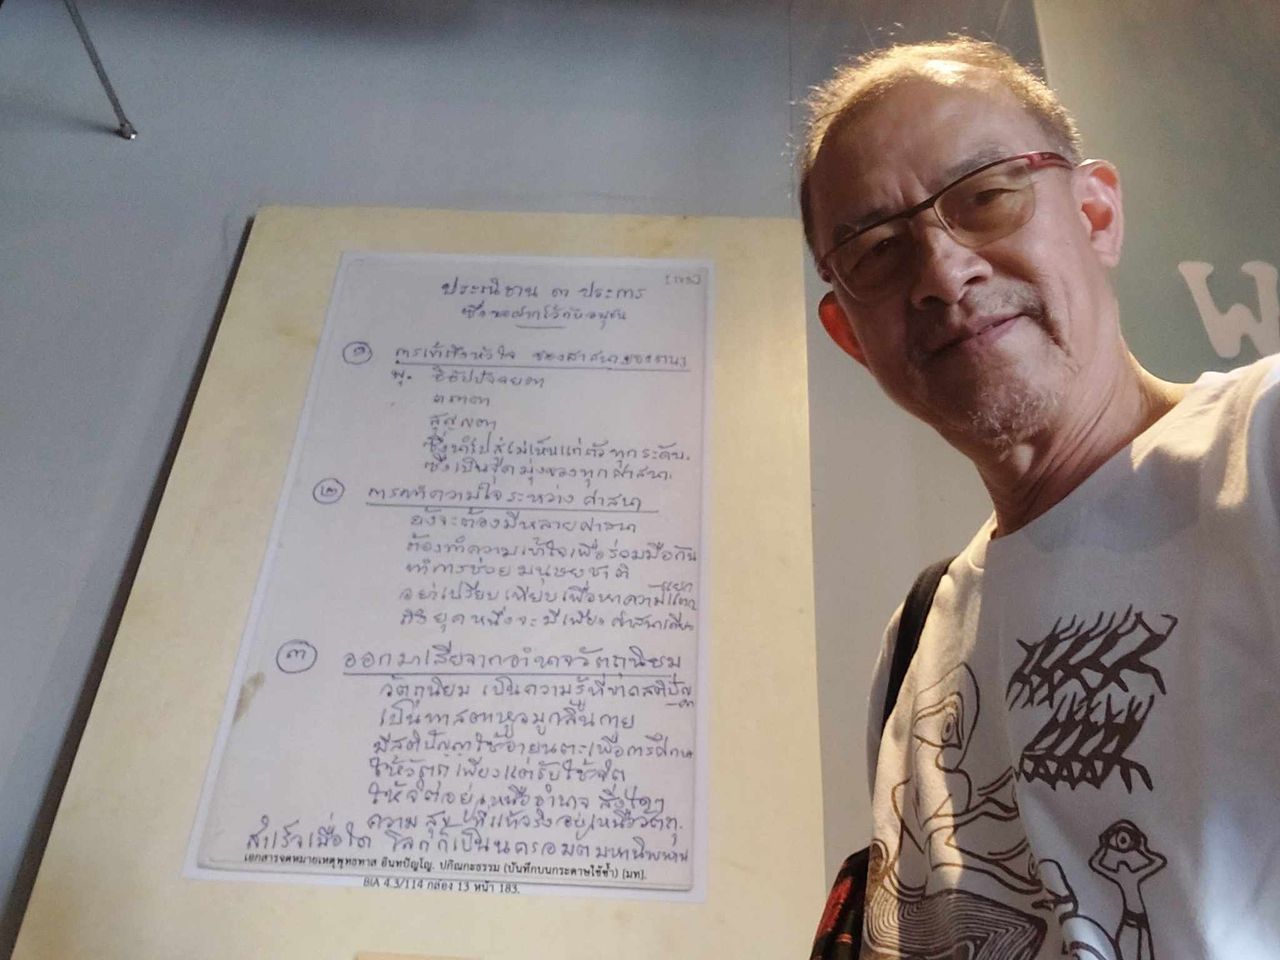 [183]
ประณิธาน ๓ ประการ
ซึ่งขอฝากไว้กับอนุชน
๑ การเข้าถึงหัวใจ ของศาสนาของตนๆ
พุ. อิทัปปัจจยตา
ตถาตา
สุญญตา
ซึ่งนำไปสู่ไม่เห็นแก่ตัวทุกระดับ.
ซึ่งเป็นจุดมุ่งของทุกศาสนา.
๒ การทำความเข้าใจระหว่างศาสนา
ยังจะต้องมีหลายศาสนา
ต้องทำความเข้าใจเพื่อร่วมมือกัน
ทำการช่วยมนุษยชาติ
อย่าเปรียบเทียบเพื่อหาความแตกแยก
ถึงยุคหนึ่งจะมีเพียงศาสนาเดียว
๓ ออกมาเสียจากอำนาจวัตถุนิยม
วัตถุนิยม เป็นความรู้ที่ขาดสติปัญญา
เป็นทาสตาหูจมูกลิ้นกาย
มีสติปัญญาใช้อายตนะเพื่อการศึกษา
ให้วัตถุเพียงแต่รับใช้จิต
ให้จิตอยู่เหนืออำนาจสิ่งใดๆ
ความสุขที่แท้จริงอยู่เหนือวัตถุ.
สำเร็จเมื่อใด โลกก็เป็นนครอมตมหานิพพาน
เอกสารจดหมายเหตุพุทธทาส อินทปัญโญ. ปกิณกะธรรม (บันทึกบนกระดาษใช้ซ้ำ) [มท].
BIA 4.3/114 กล่อง 13 หน้า 183.
W